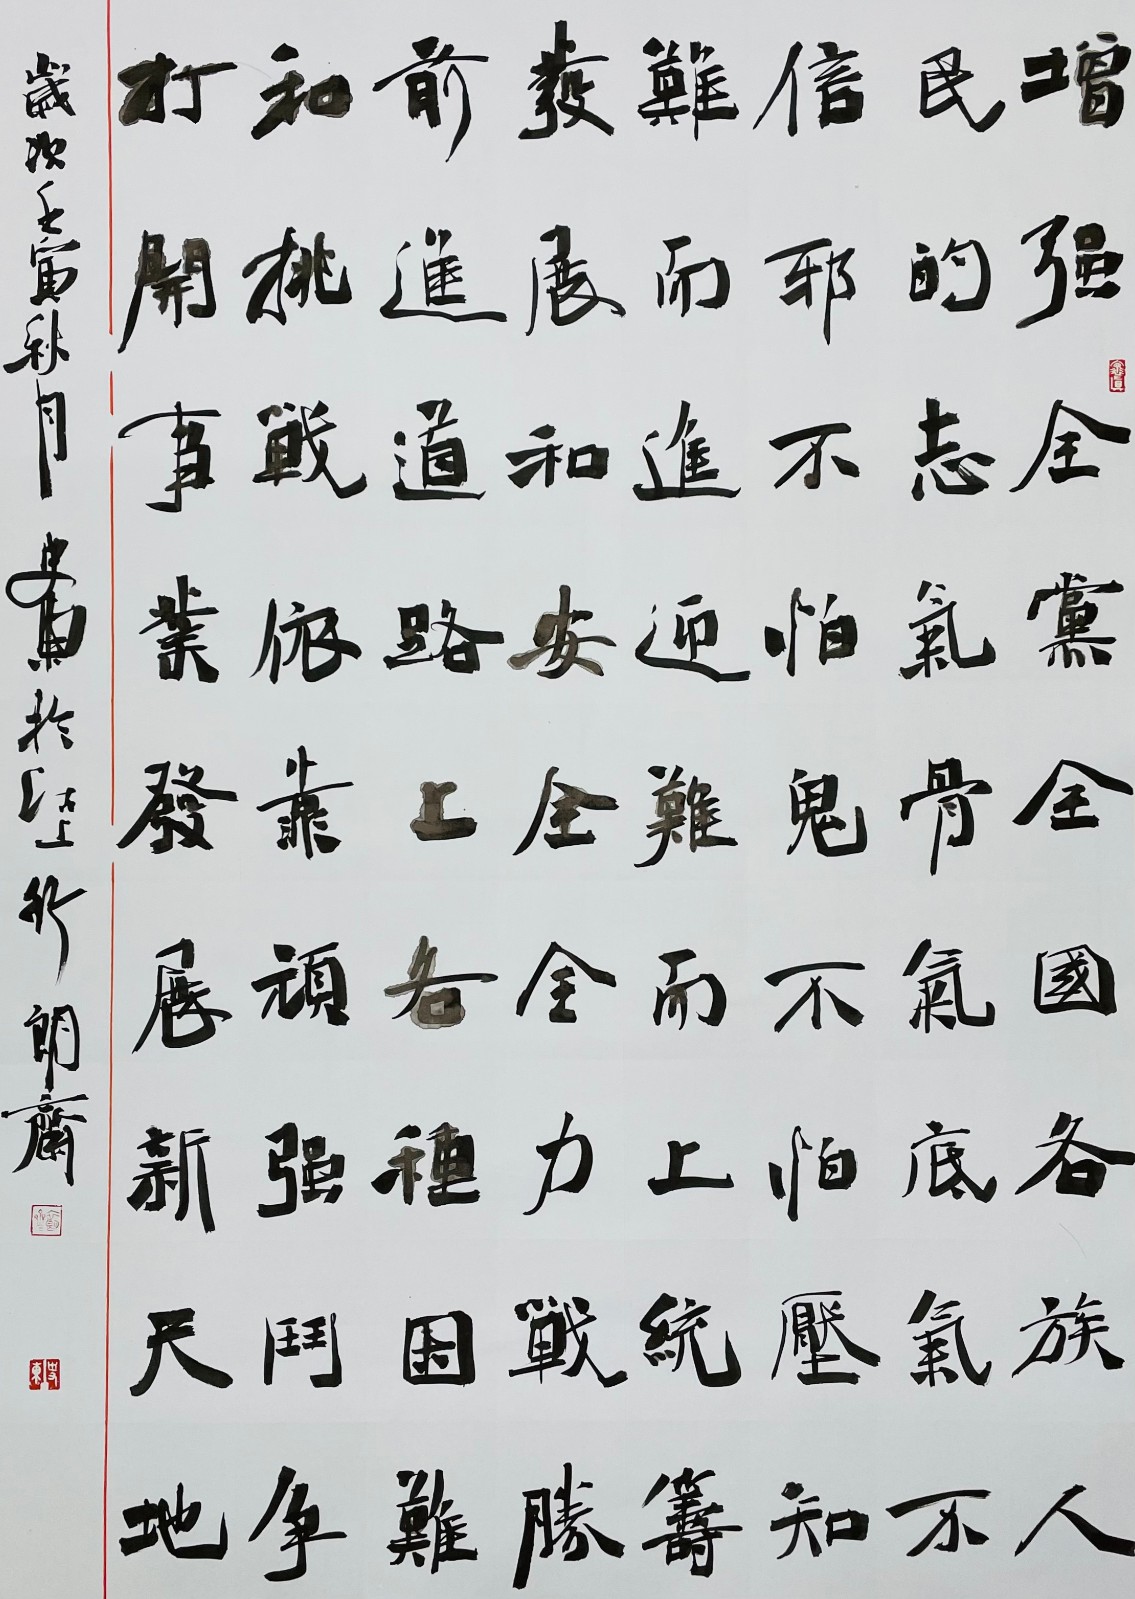 增强全黨全國各族人
民的志氣骨氣底氣不
信邪不怕鬼不怕壓知
難而進迎難而上統籌
發展和安全全力戰勝
前進道路上各種困難
和挑戰依靠頑强鬥争
打開事業發展新天地
歲次壬寅秋月史東於上竹朗齋
史東